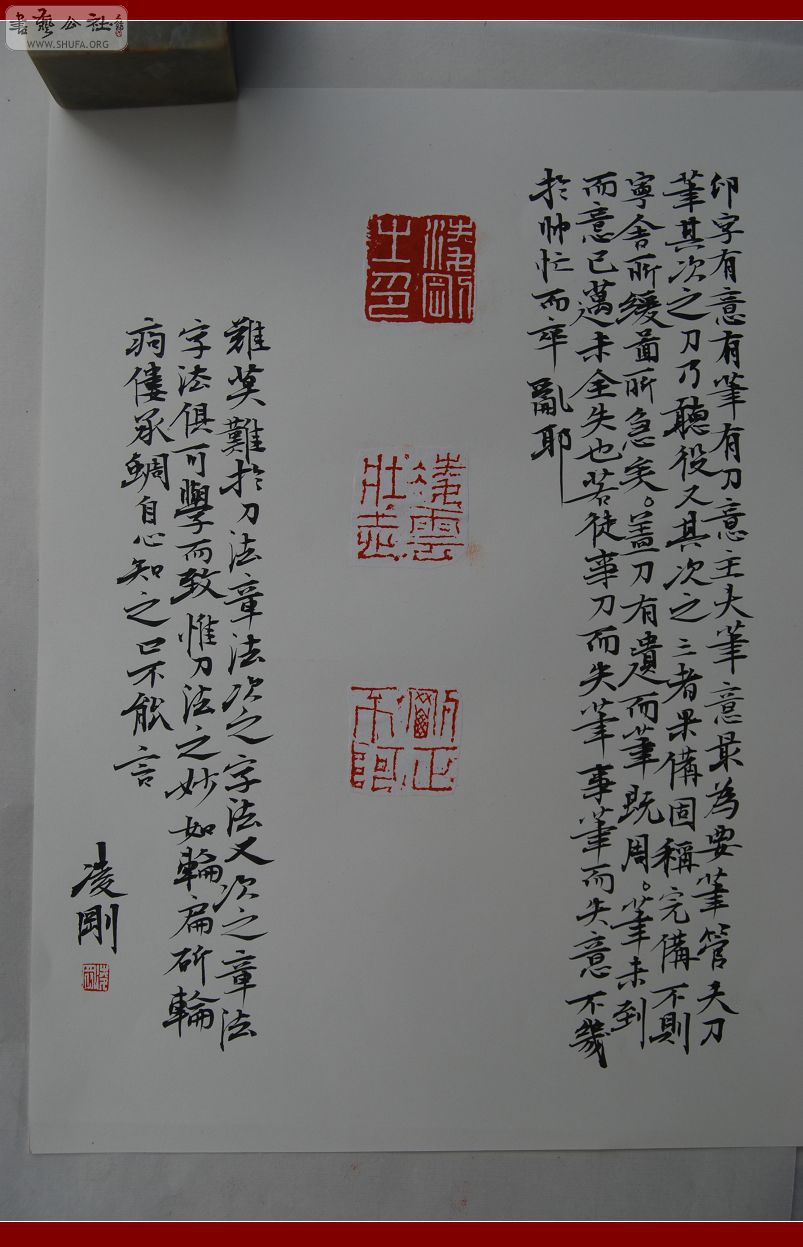 書藝公社
WWW.SHUFA.ORG
印字有意有筆有刀意主夫筆意最為要筆管夫刀
筆其次之刀乃聽役又其次之三者果備固稱完備不則
寧舍所緩啚所急矣。盖刀有遺而筆既周。筆未到
而意已邁未全失也若徒事刀而失筆事筆而失意不幾
於帥忙而卒亂耶
凌剛
之印
凌雲
壯志
剛正
不阿
難莫難於刀法章法次之字法又次之章法
字法俱可學而致惟刀法之妙如輪扁斫輪
痀僂承蜩自心知之口不能言
凌剛
凌剛